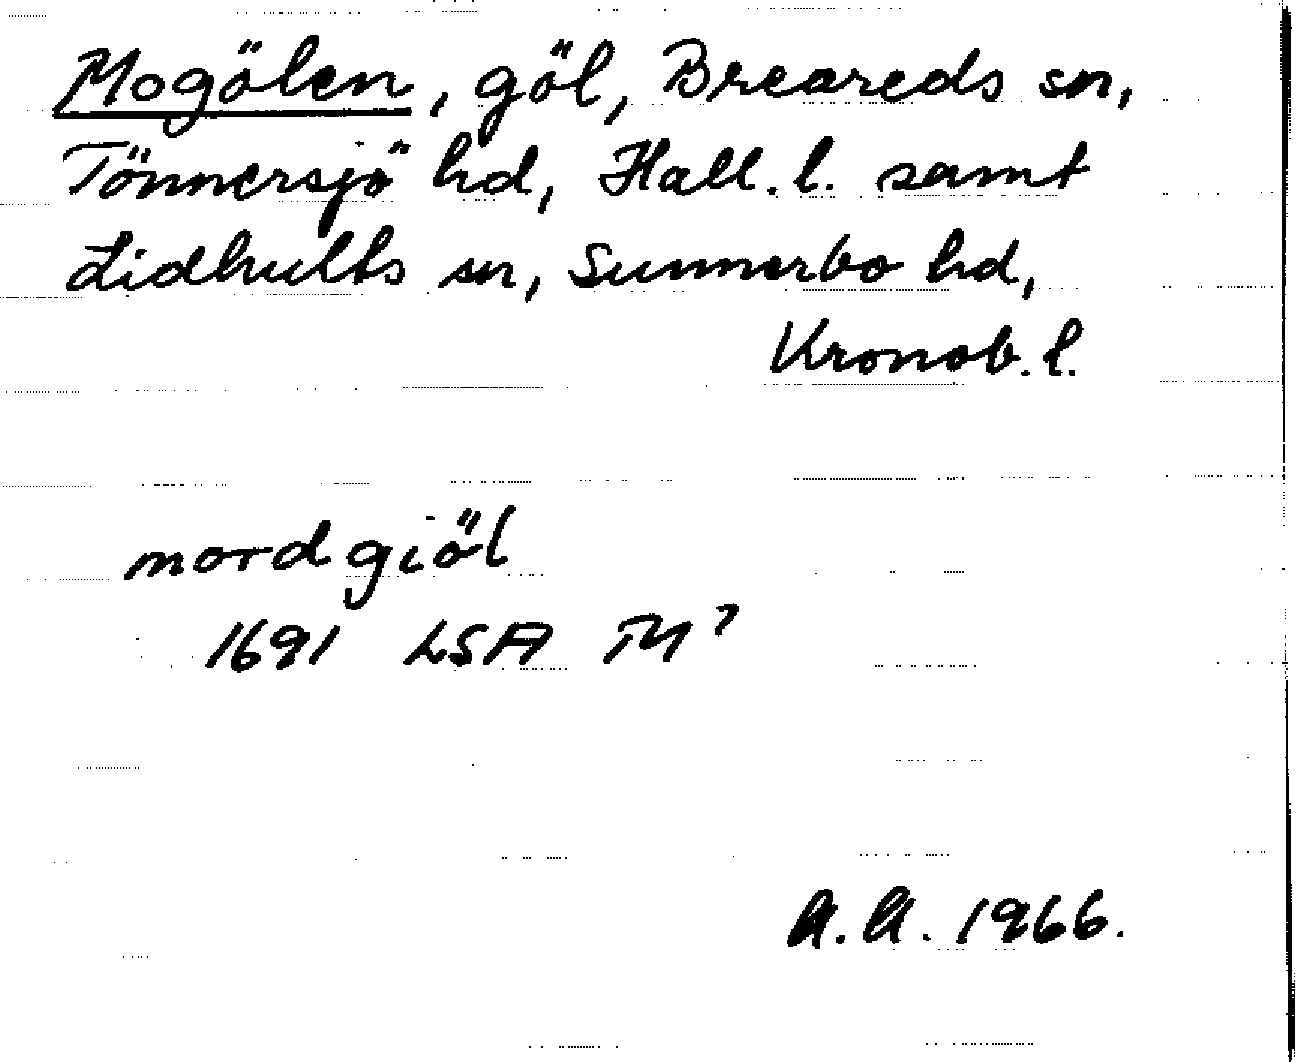 Mogölen, göl, Breareds sn,
Tönnersjö hd, Hall. l. samt
Lidhults sn, Sunnerbo hd,
Kronob. l.
mord giöl
1691 LSA M⁷
A.A. 1966.